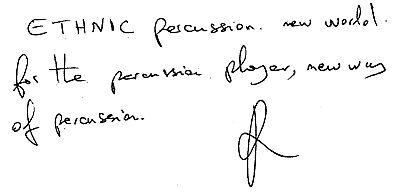 ETHNIC percussion. new world.
for the percussion player, new way
of percussion.